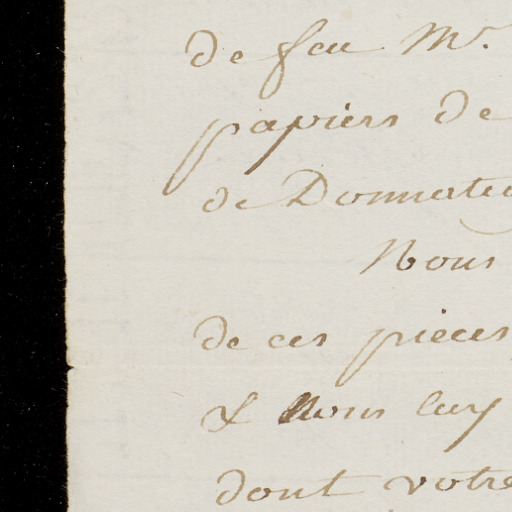 de feu Mr.
papiers de
de Donnerte
Nous
de ces pieces
& Nous luy
dont votre